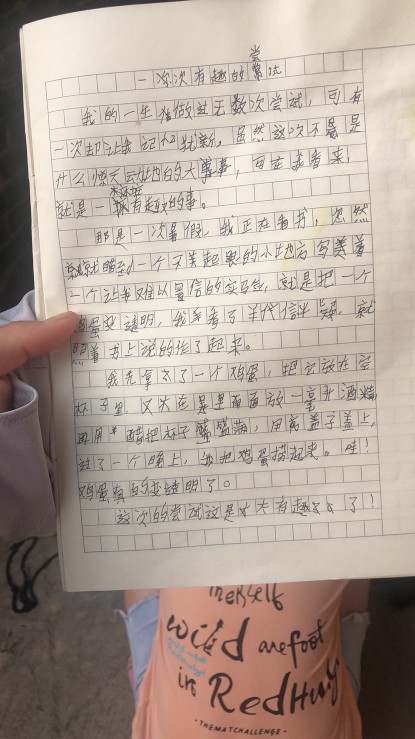 尝
一次有趣的尝试
我的一生独做过无数次尝试，可有
一次却让我记忆犹新，虽然这次不算是
什么惊天动地的大事，可在我看来，
就是一有趣的事。
那是一次暑假，我正在看书，忽然
就看到一个不美起眼的小地方写着
一个让我难以置信的实马佥，就是把一个
鸡蛋变透明，我看了半代信半疑，就
照着书上说的作了起来。
我先拿了一个鸡蛋，把它放在空
杯子里，又在里面放一毫升酒精
再用醋把杯子满，用盖子盖上，
过了一个晚上，我把鸡蛋捞起来。哇！
鸡蛋真的变透明了。
这次的尝试这是太有趣了！
THERSELF
wild arefoot
in RedHung
·THEMATCHALLENGE·